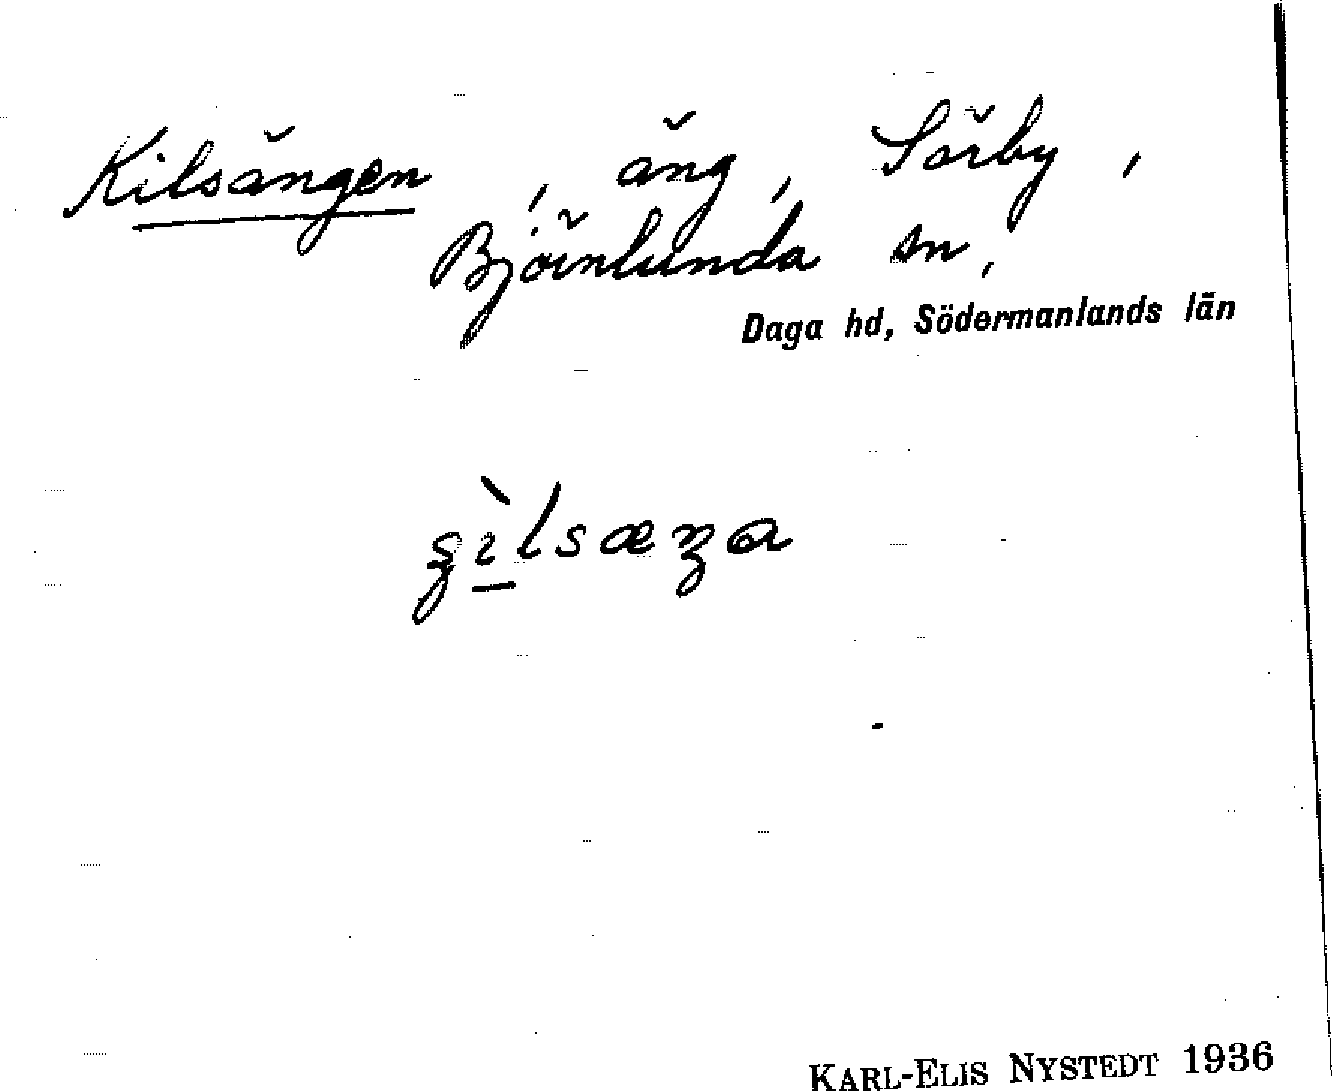 Kilsängen, äng, Sörby,
Björnlunda sn,
Daga hd, Södermanlands län
KARL-ELIS NYSTEDT 1936